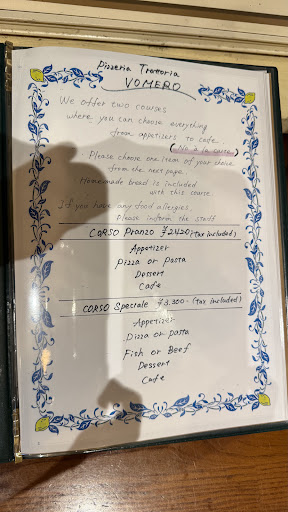 Pizzeria Trattoria
VOMERO
We offer two courses
where you can choose everything
from appetizers to cafe.
(No à la carte)
Please choose one item of your choice
from the next page.
Homemade bread is included
with this course.
If you have any food allergies,
Please inform the staff
CORSO Pranzo ¥2,420 (tax included)
Appetizer
Pizza or Pasta
Dessert
Cafe
CORSO Speciale ¥3,300- (tax included)
Appetizer
Pizza or Pasta
Fish or Beef
Dessert
Cafe